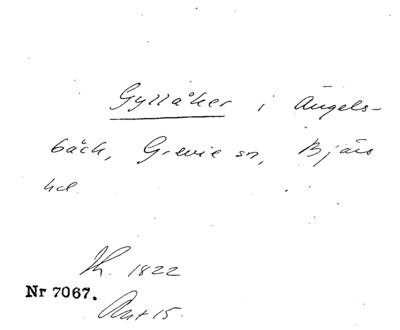 Gyllåker i Ängels-
bäck, Grevie sn, Bjäre
hd.
1822
Nr 7067.
Ant 15.